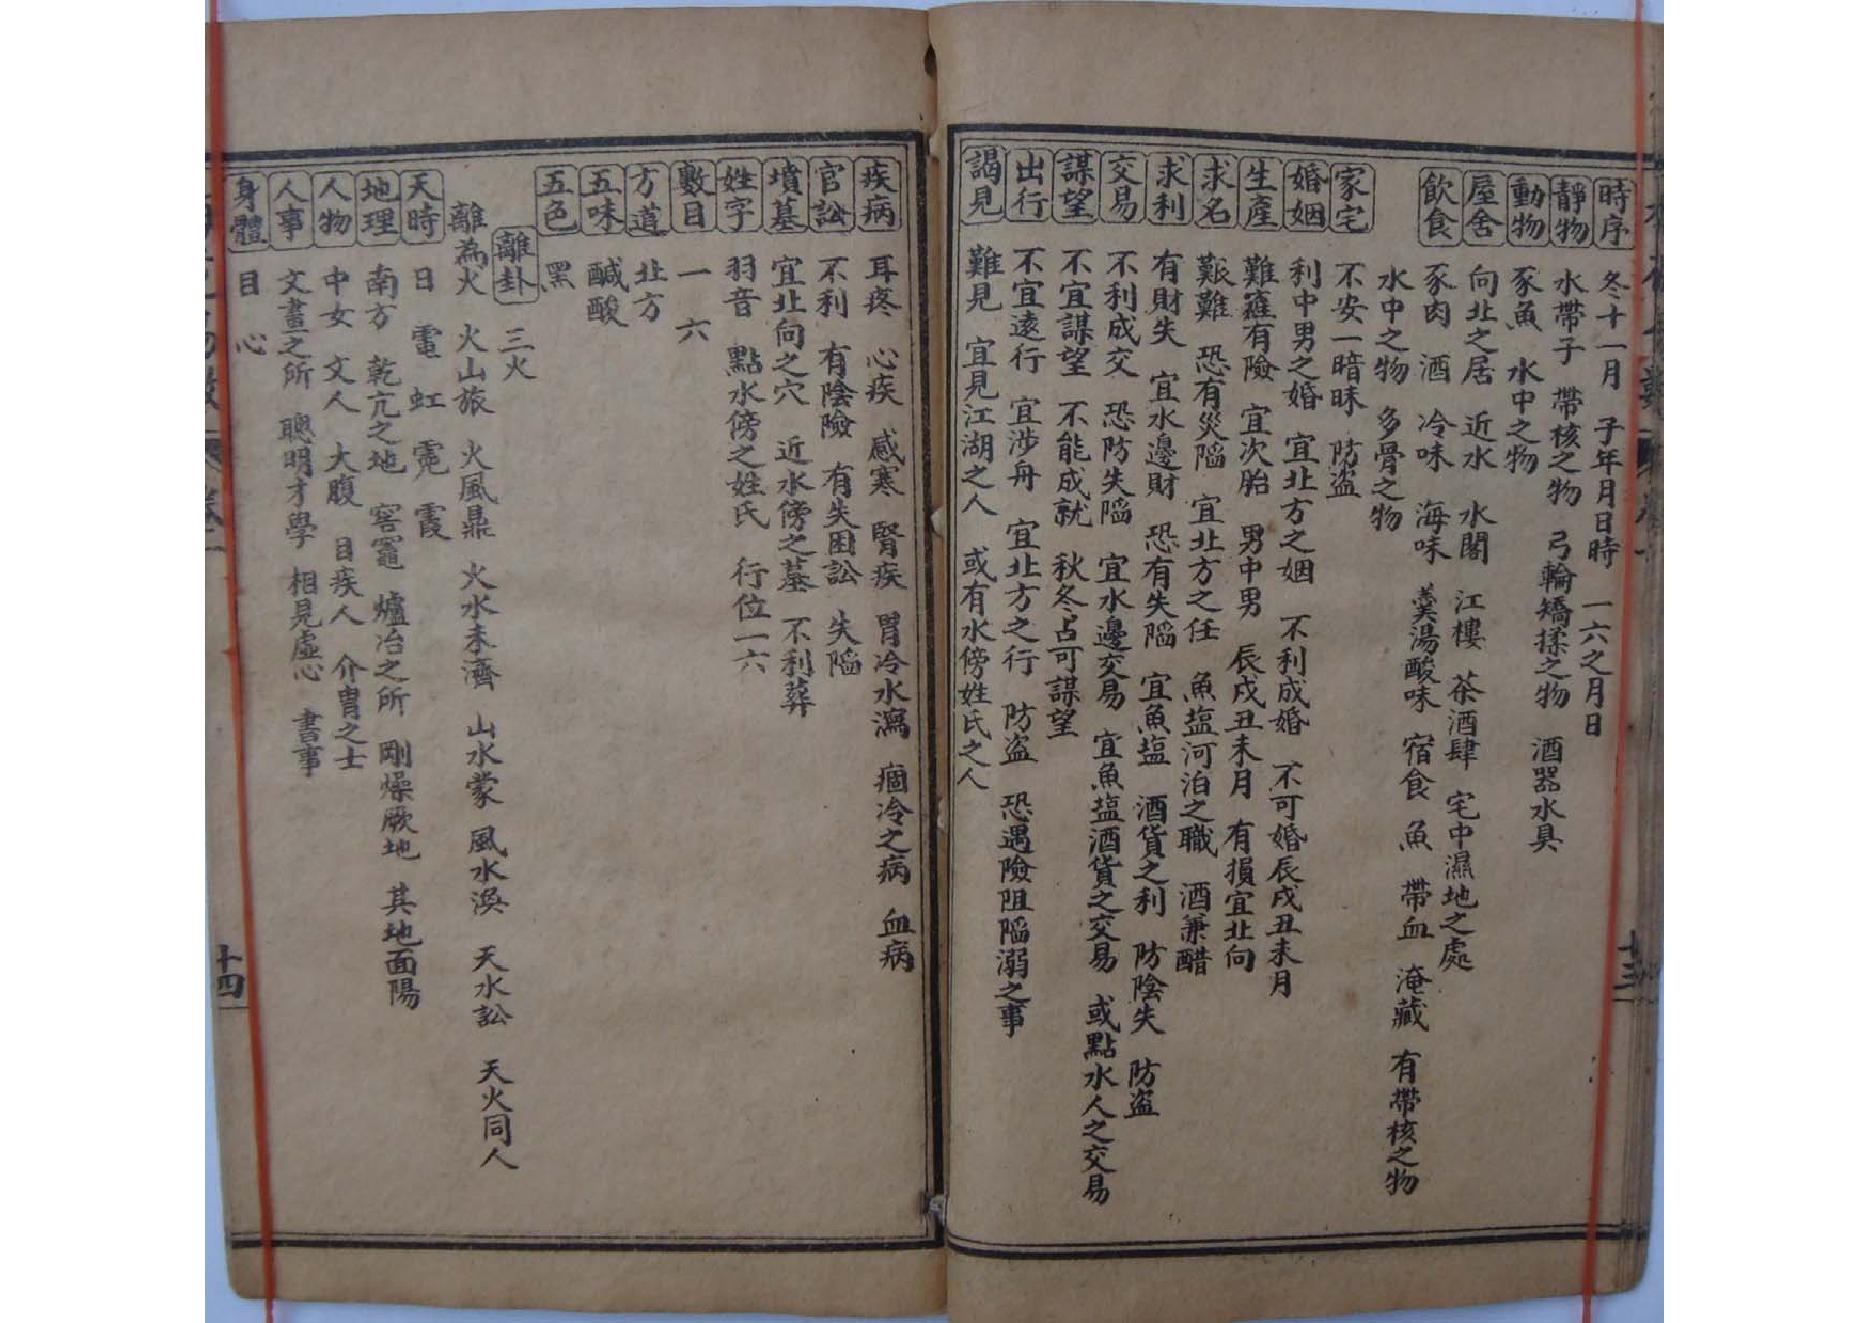 時序 冬十一月 子年月日時 一六之月日
靜物 水帶子 帶核之物 弓輪矯揉之物 酒器水具
動物 豕魚 水中之物
屋舍 向北之居 近水 水閣 江樓 茶酒肆 宅中濕地之處
飲食 豕肉 酒 冷味 海味 羹湯酸味 宿食 魚 帶血 淹藏 有帶核之物
水中之物 多骨之物
家宅 不安一暗昧 防盜
婚姻 利中男之婚 宜北方之姻 不利成婚 不可婚辰戌丑未月
生產 難產有險 宜次胎 男中男 辰戌丑未月 有損宜北向
求名 艱難 恐有災陷 宜北方之任 魚塩河泊之職 酒兼醋
求利 有財失 宜水邊財 恐有失陷 宜魚塩 酒貨之利 防陰失 防盜
交易 不利成交 恐防失陷 宜水邊交易 宜魚塩酒貨之交易 或點水人之交易
謀望 不宜謀望 不能成就 秋冬占可謀望
出行 不宜遠行 宜涉舟 宜北方之行 防盜 恐遇險阻陷溺之事
謁見 難見 宜見江湖之人 或有水傍姓氏之人
疾病 耳疼 心疾 感寒 腎疾 胃冷水瀉 痼冷之病 血病
官訟 不利 有陰險 有失困訟 失陷
墳墓 宜北向之穴 近水傍之墓 不利葬
姓字 羽音 點水傍之姓氏 行位一六
數目 一 六
方道 北方
五味 鹹酸
五色 黑
離卦 三火
離為火 火山旅 火風鼎 火水未濟 山水蒙 風水渙 天水訟 天火同人
天時 日 電 虹 霓 霞
地理 南方 乾亢之地 窖竈 爐冶之所 剛燥厥地 其地面陽
人物 中女 文人 大腹 目疾人 介冑之士
人事 文畫之所 聰明才學 相見虛心 書事
身體 目 心
十四